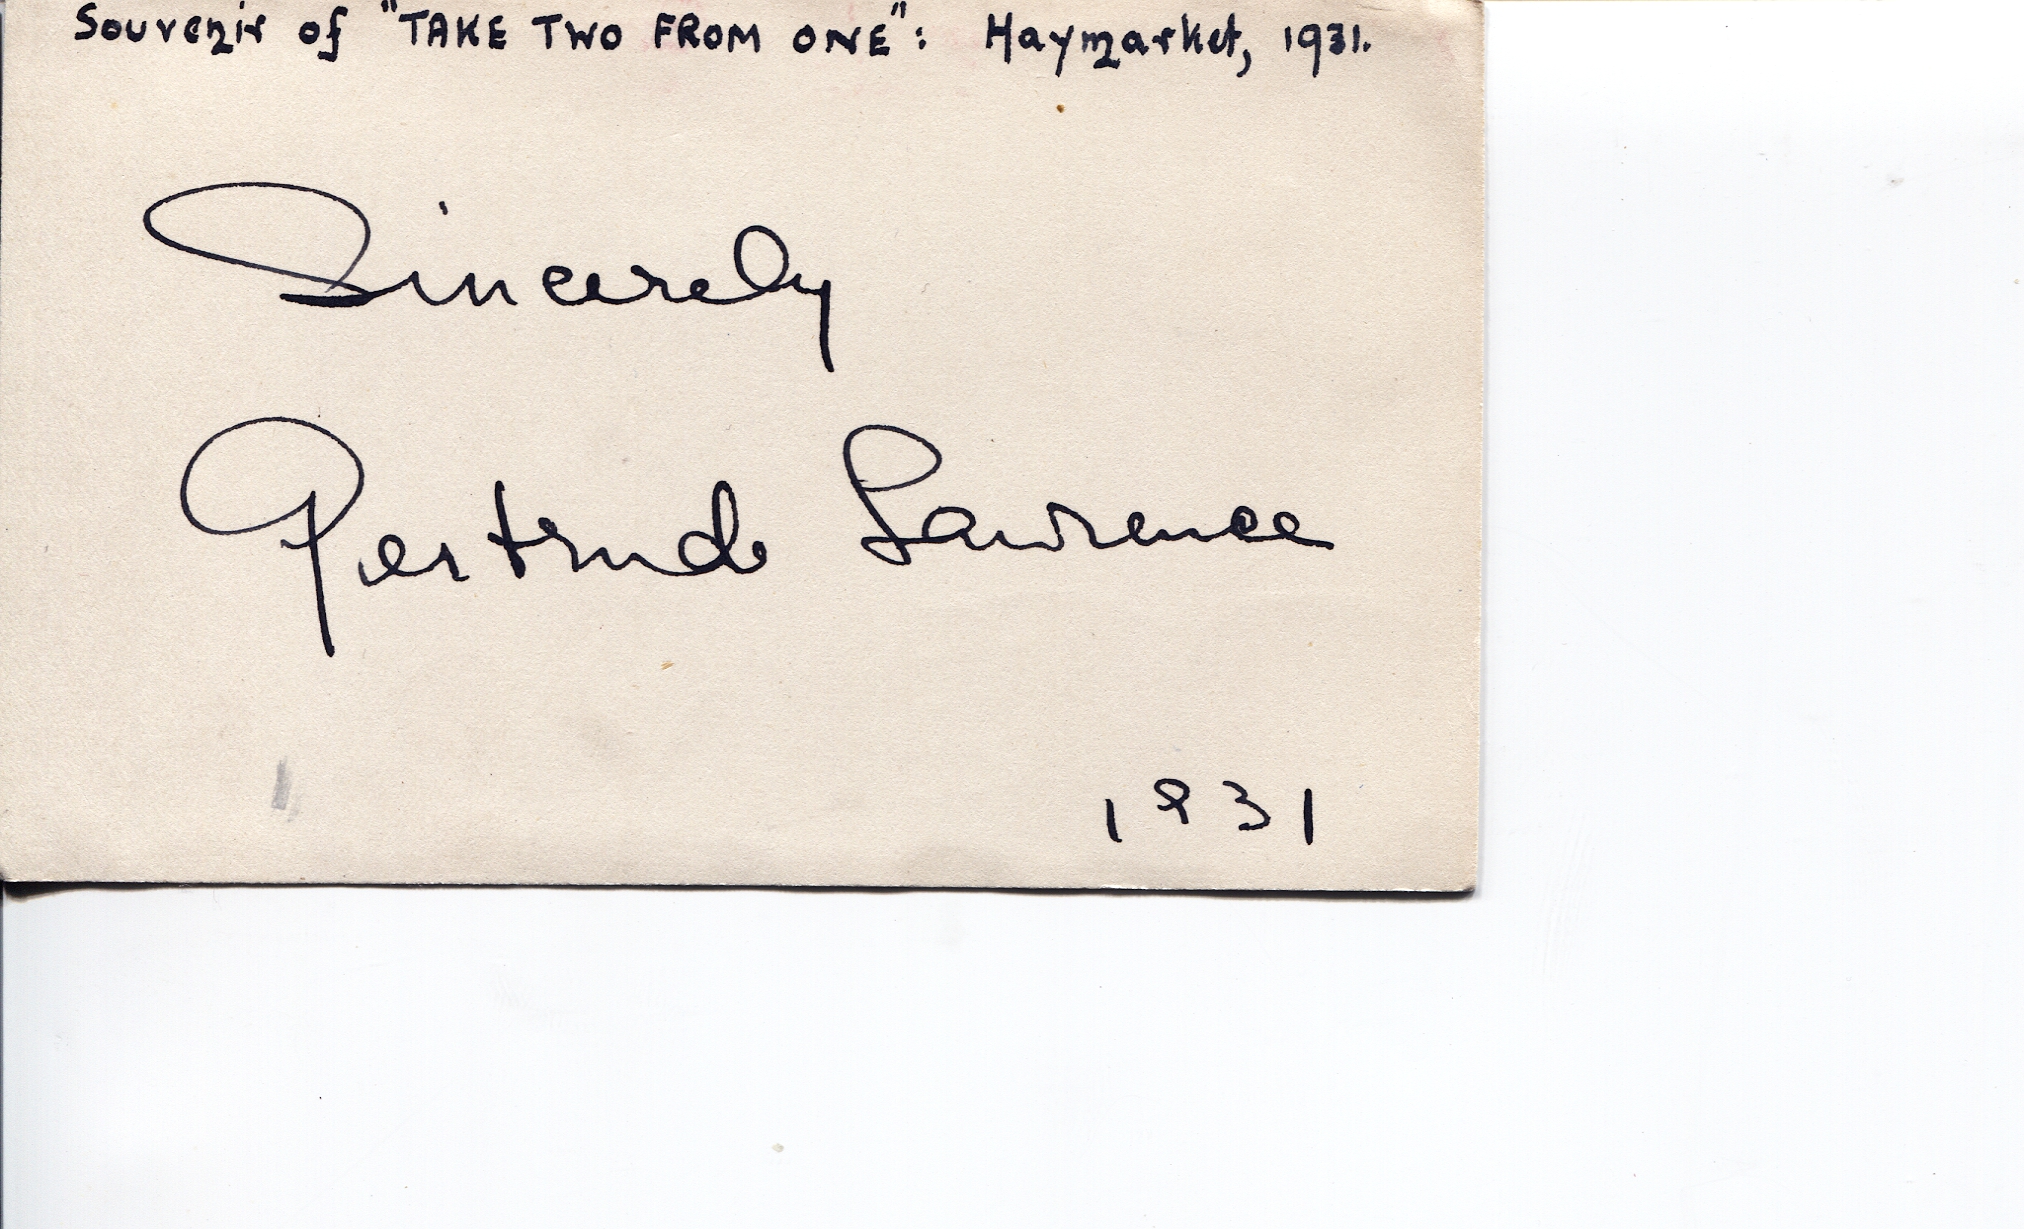 Souvenir of "TAKE TWO FROM ONE": Haymarket, 1931.
Sincerely
Gertrude Lawrence
1931